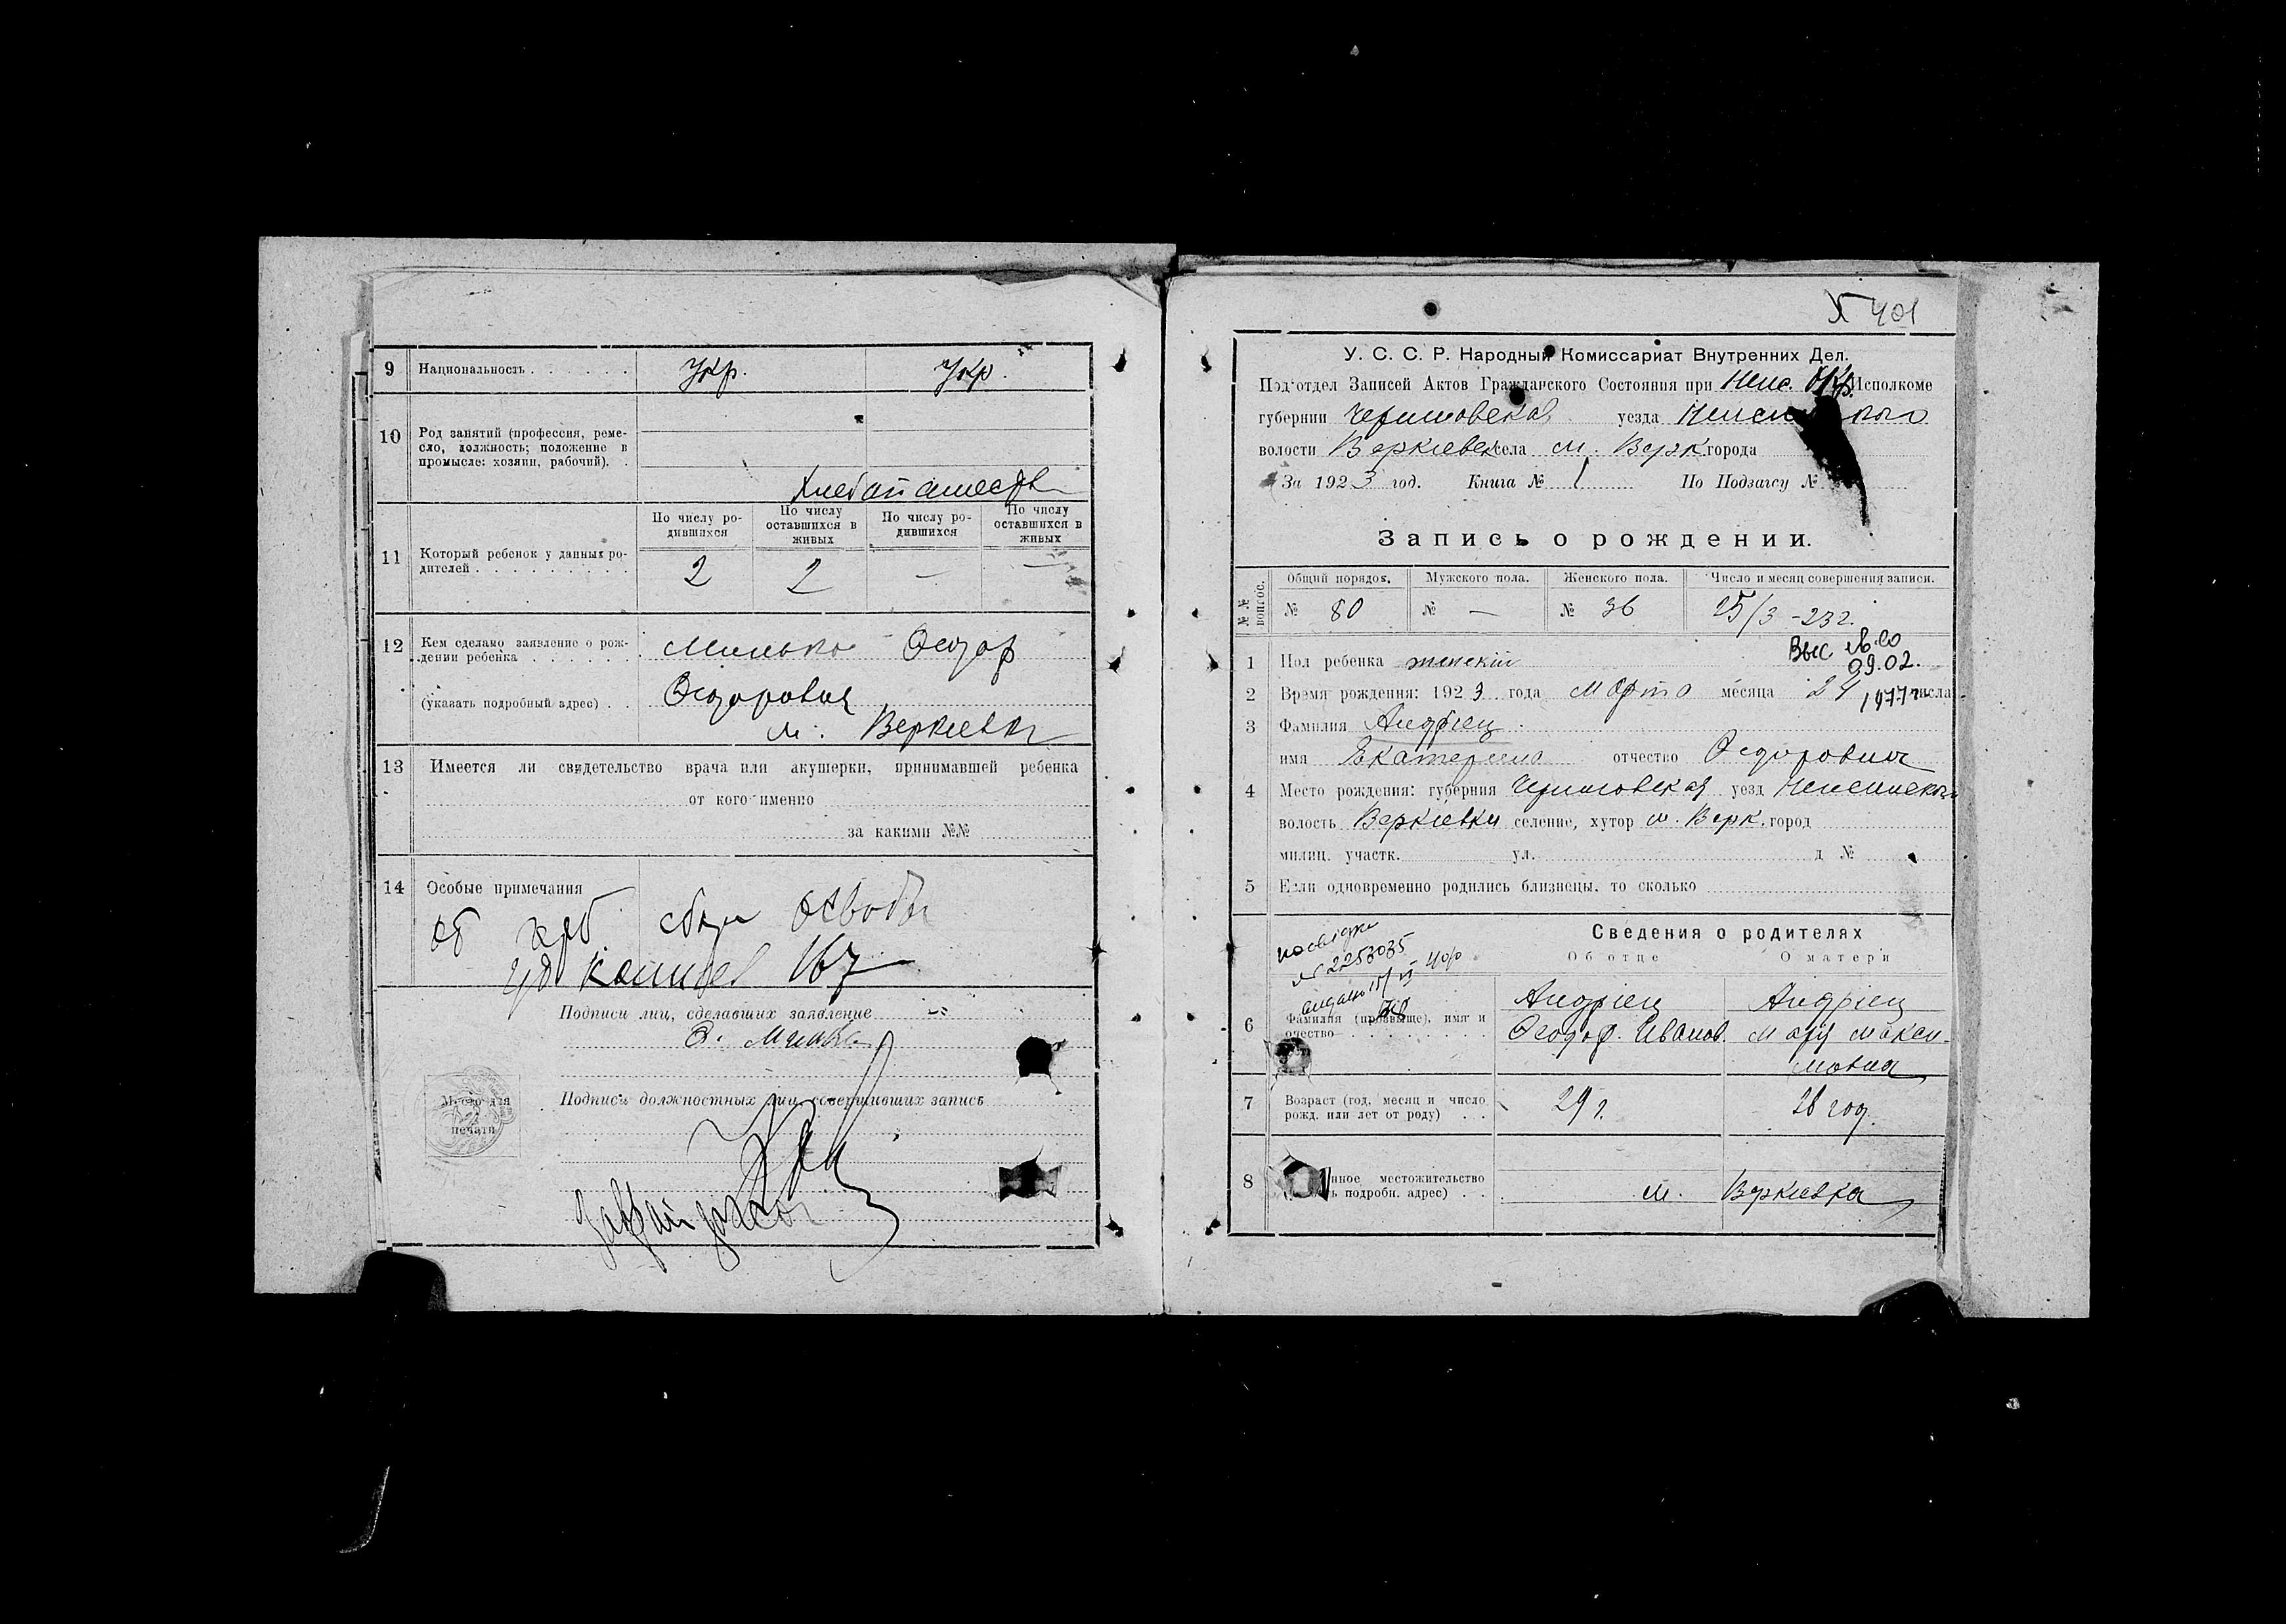 9 Национальность . . . . . . Укр. Укр.
10 Род занятий (профессия, реме-
сло, должность; положение в
промысле: хозяин, рабочий). .
По числу ро-
дившихся
По числу
оставшихся в
живых
По числу ро-
дившихся
По числу
оставшихся в
живых
11 Который ребенок у данных ро-
дителей . . . . . . . . . . 2 2 — —
12 Кем сделано заявление о рож-
дении ребенка . . . . . . Милько Феодор
(указать подробный адрес) . . Феодорович
м. Веркиевка
13 Имеется ли свидетельство врача или акушерки, принимавшей ребенка
от кого именно
за какими №№
14 Особые примечания
167
Подписи лиц, сделавших заявление
Ф. Милько
Подпись должностных лиц, совершивших запись
Место для
печати
401
У. С. С. Р. Народный Комиссариат Внутренних Дел.
Под'отдел Записей Актов Гражданского Состояния при Неж. Окр. Исполкоме
губернии Черниговская уезда
волости Веркиевск села м. Верк. города
За 1923 год. Книга № 1 По Подзагсу №
Запись о рождении.
№№ вопрос.
Общий порядов. Мужского пола. Женского пола. Число и месяц совершения записи.
№ 80 № — № 36 25/3 -23 г.
1 Пол ребенка женский
09.02.
1977
2 Время рождения: 1923 года Марта месяца 24 числа
3 Фамилия Андріец
имя Екатерина отчество Феодоровна
4 Место рождения: губерния Черниговская уезд Неженского
волость Веркіевки селение, хутор м. Верк. город
милиц. участк. ул. д №
5 Если одновременно родились близнецы, то сколько
Сведения о родителях
Об отце О матери
6 Фамилия (прозвище), имя и
отчество
Андріец
Феодор. Иванов.
Андріец
Мария Макси-
мовна
7 Возраст (год, месяц и число
рожд. или лет от роду) . . 29 г. 28 год.
8 местожительство
подробн. адрес) . . м. Веркиевка